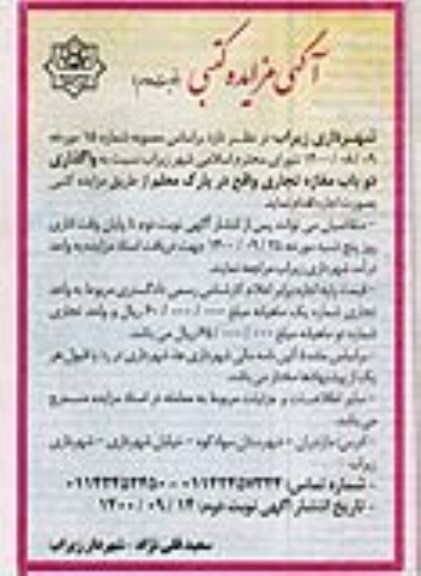 آگهی مزایده کتبی (نوبت دوم)
شهرداری زیراب در نظر دارد براساس مصوبه شماره ۱۵ مورخه
۱۴۰۰/۰۸/۰۹ شورای محترم اسلامی شهر زیراب نسبت به واگذاری
دو باب مغازه تجاری واقع در پارک معلم از طریق مزایده کتبی
بصورت اجاره اقدام نماید.
- متقاضیان می توانند پس از انتشار آگهی نوبت دوم تا پایان وقت اداری
روز پنج شنبه مورخه ۱۴۰۰/۰۹/۲۵ جهت دریافت اسناد مزایده به واحد
درآمد شهرداری زیراب مراجعه نمایند.
- قیمت پایه اجاره برابر اعلام کارشناس رسمی دادگستری مربوط به واحد
تجاری شماره یک ماهیانه مبلغ ریال و واحد تجاری
شماره دو ماهیانه مبلغ ریال می باشد.
- براساس ماده ۵ آئین نامه مالی شهرداری ها، شهرداری در رد یا قبول هر
یک از پیشنهادها مختار می باشد.
- سایر اطلاعات و جزئیات مربوط به معامله در اسناد مزایده مندرج
می باشد.
- آدرس: مازندران - شهرستان سوادکوه - خیابان شهرداری - شهرداری
زیراب
- شماره تماس:
- تاریخ انتشار آگهی نوبت دوم: ۱۴۰۰/۰۹/۱۴
سعید قلی نژاد - شهردار زیراب